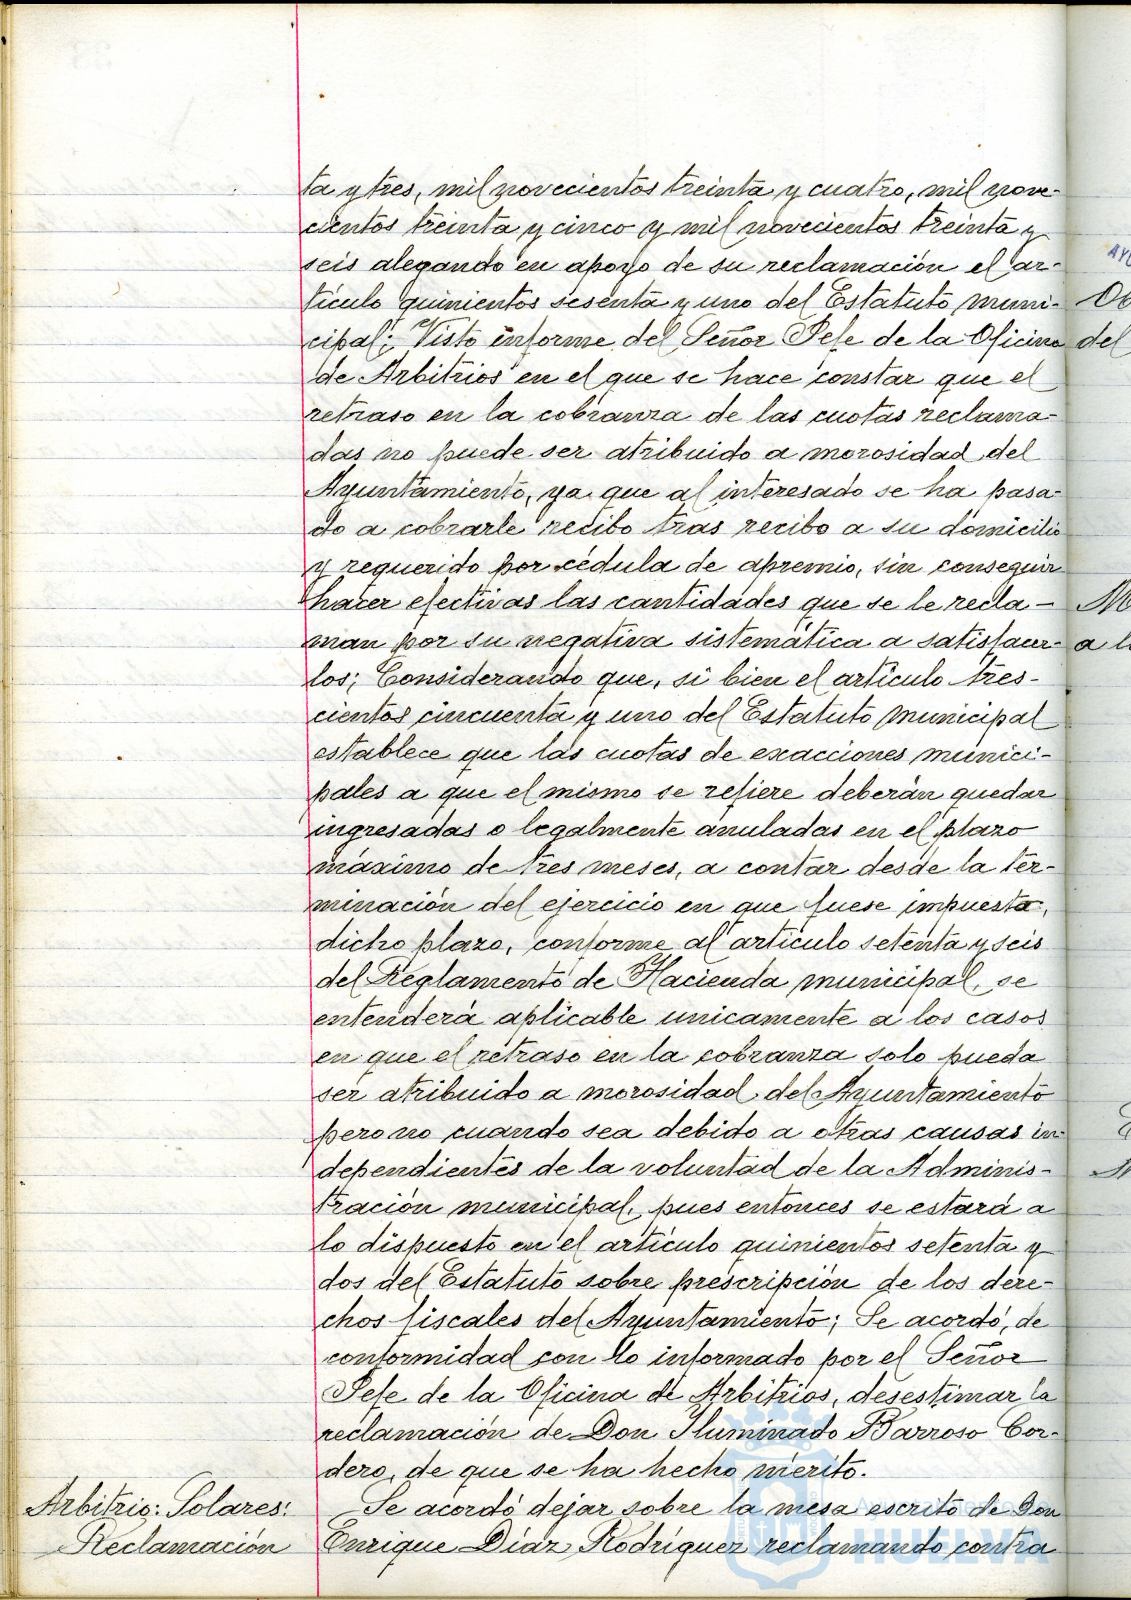 ta y tres, mil novecientos treinta y cuatro, mil nove-
cientos treinta y cinco y mil novecientos treinta y
seis alegando en apoyo de su reclamación el ar-
tículo quinientos sesenta y uno del Estatuto muni-
cipal; Visto informe del Señor Jefe de la Oficina
de Arbitrios en el que se hace constar que el
retraso en la cobranza de las cuotas reclama-
das no puede ser atribuido a morosidad del
Ayuntamiento, ya que al interesado se ha pasa-
do a cobrarle recibo tras recibo a su domicilio
y requerido por cédula de apremio, sin conseguir
hacer efectivas las cantidades que se le recla-
man por su negativa sistemática a satisfacer-
los; Considerando que, si bien el artículo tres-
cientos cincuenta y uno del Estatuto municipal
establece que las cuotas de exacciones munici-
pales a que el mismo se refiere deberán quedar
ingresadas o legalmente anuladas en el plazo
máximo de tres meses, a contar desde la ter-
minación del ejercicio en que fuese impuesta,
dicho plazo, conforme al artículo setenta y seis
del Reglamento de Hacienda municipal, se
entenderá aplicable unicamente a los casos
en que el retraso en la cobranza solo pueda
ser atribuido a morosidad del Ayuntamiento
pero no cuando sea debido a otras causas in-
dependientes de la voluntad de la Adminis-
tración municipal, pues entonces se estará a
lo dispuesto en el artículo quinientos setenta y
dos del Estatuto sobre prescripción de los dere-
chos fiscales del Ayuntamiento; Se acordó, de
conformidad con lo informado por el Señor
Jefe de la Oficina de Arbitrios, desestimar la
reclamación de Don Iluminado Barroso Cor-
dero, de que se ha hecho mérito.
Arbitrio: Solares:
Reclamación
Se acordó dejar sobre la mesa escrito de Don
Enrique Díaz Rodríguez reclamando contra
HUELVA
del
a l